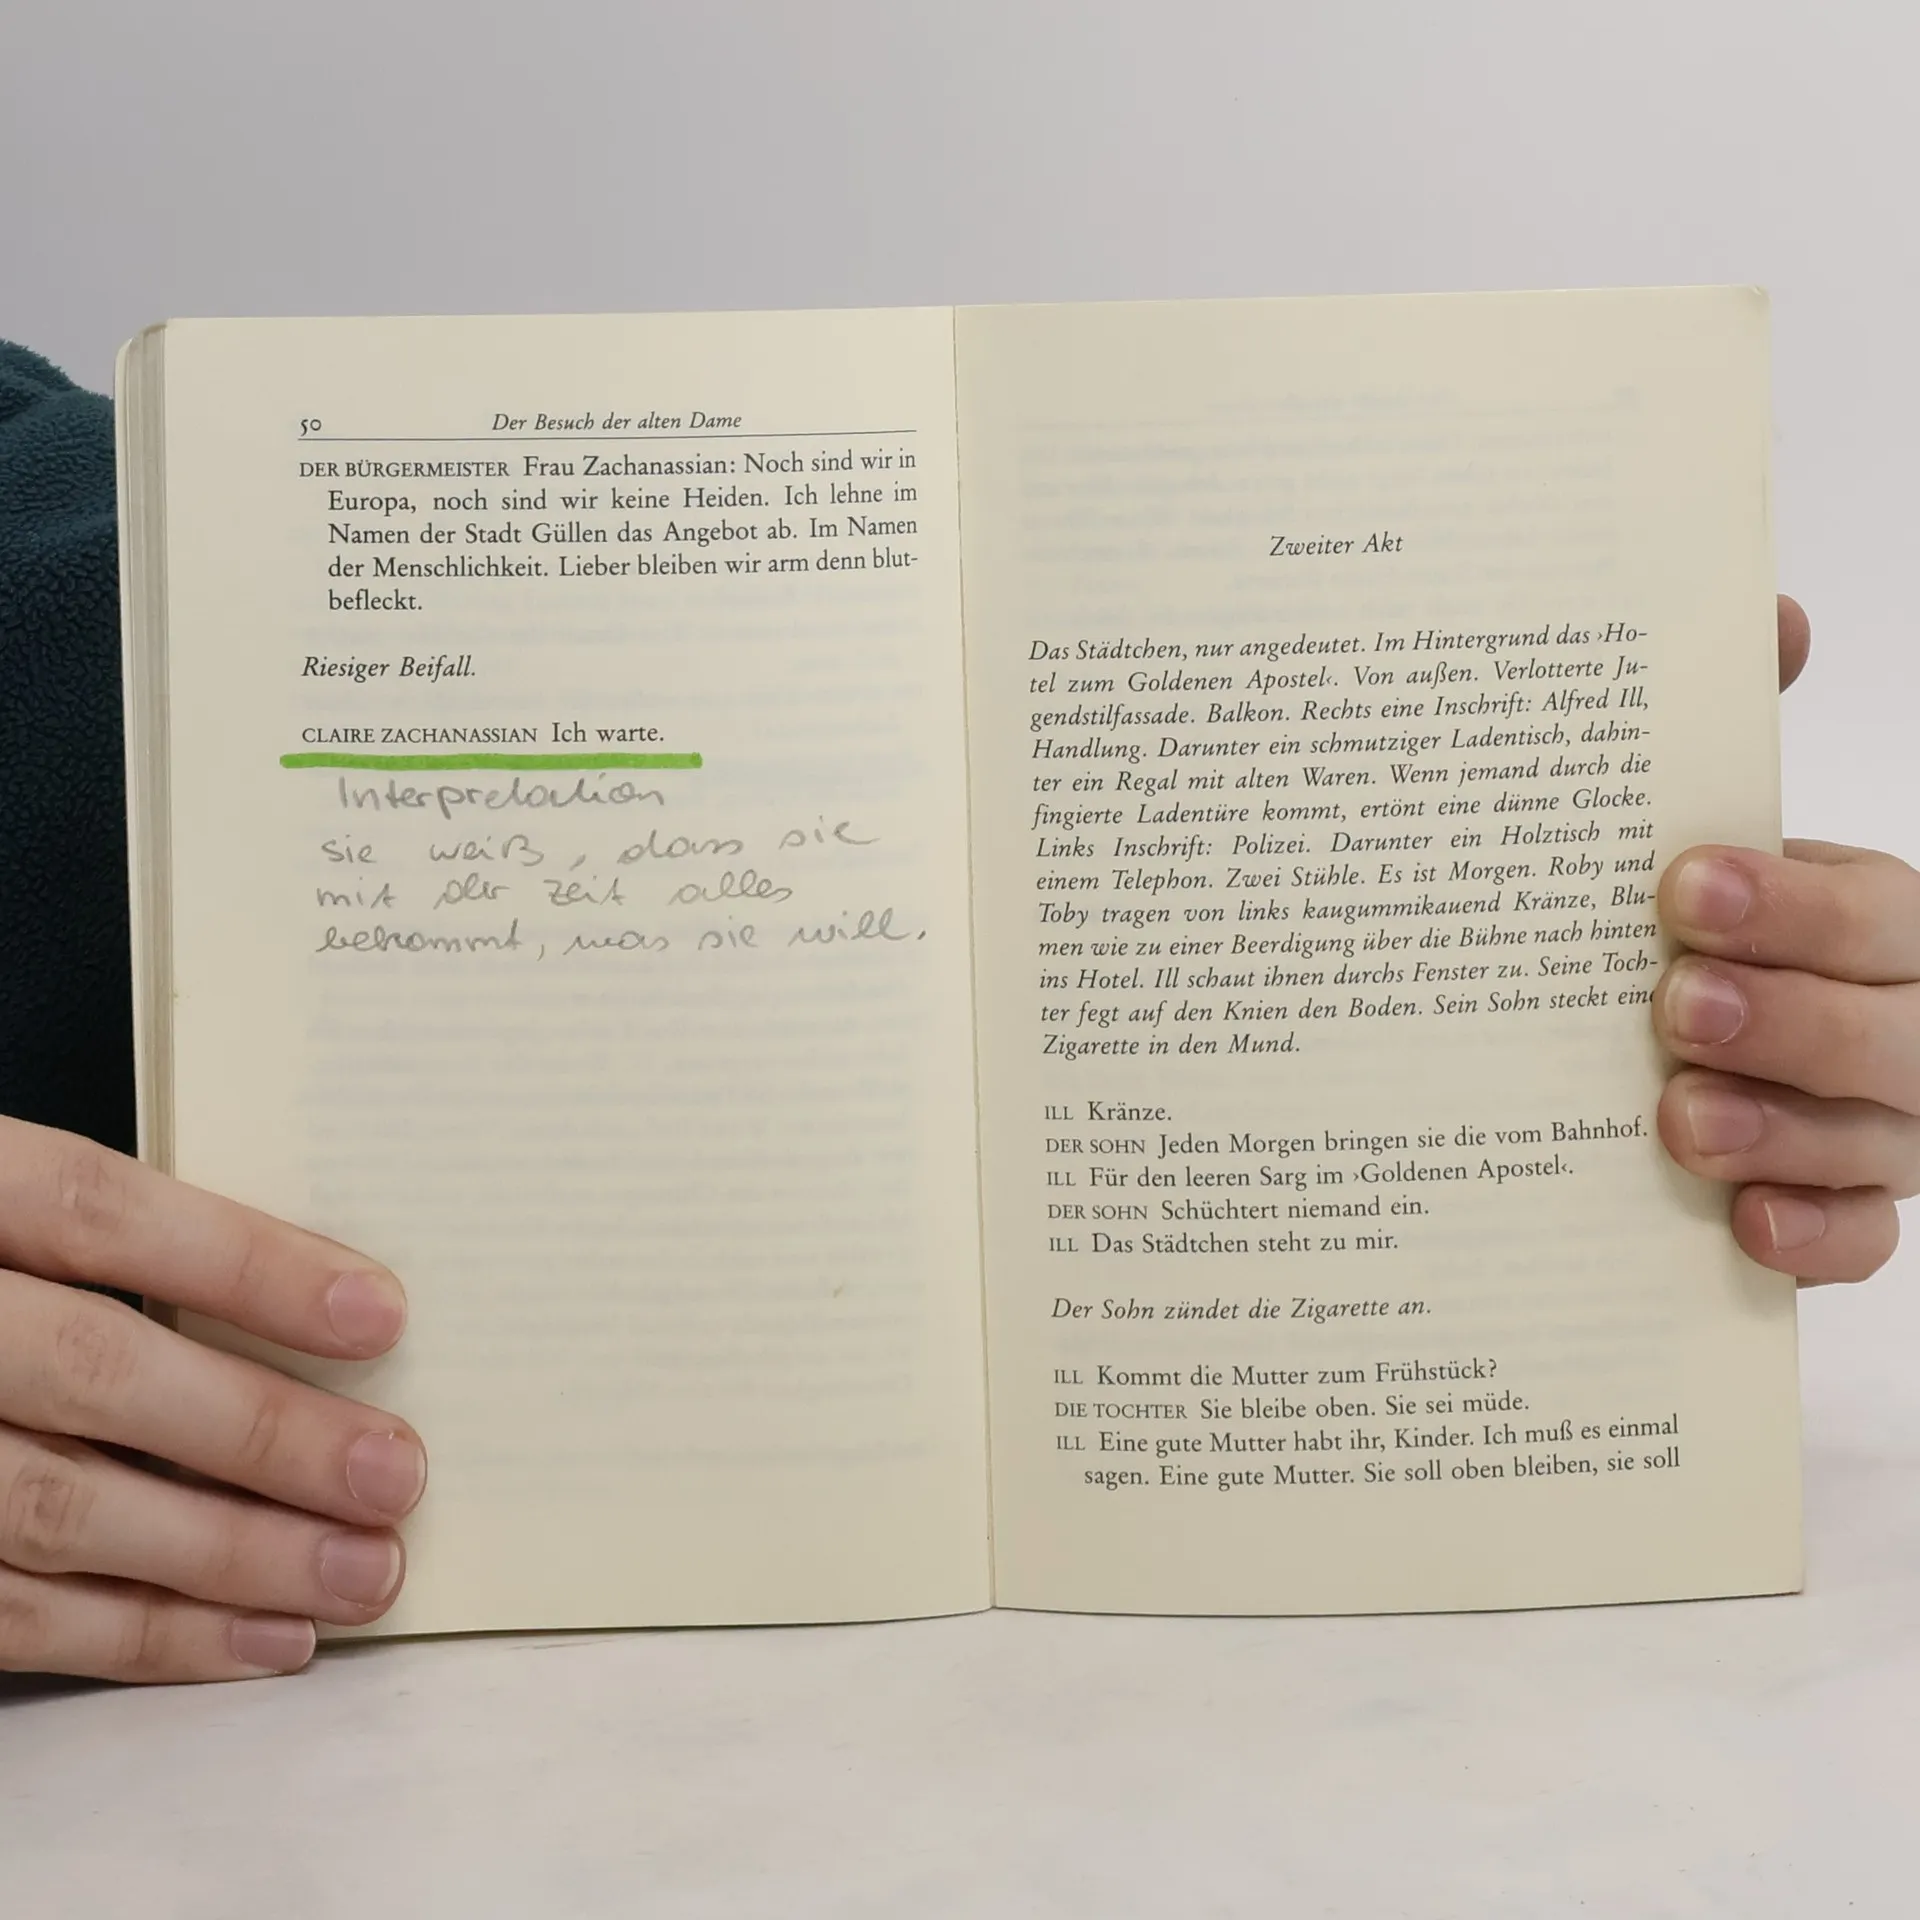 50 Der Besuch der alten Dame
DER BÜRGERMEISTER Frau Zachanassian: Noch sind wir in
Europa, noch sind wir keine Heiden. Ich lehne im
Namen der Stadt Güllen das Angebot ab. Im Namen
der Menschlichkeit. Lieber bleiben wir arm denn blut-
befleckt.
Riesiger Beifall.
CLAIRE ZACHANASSIAN Ich warte.
Interpretation
sie weiß, dass sie
mit der Zeit alles
bekommt, was sie will.
Zweiter Akt
Das Städtchen, nur angedeutet. Im Hintergrund das ›Ho-
tel zum Goldenen Apostel‹. Von außen. Verlotterte Ju-
gendstilfassade. Balkon. Rechts eine Inschrift: Alfred Ill,
Handlung. Darunter ein schmutziger Ladentisch, dahin-
ter ein Regal mit alten Waren. Wenn jemand durch die
fingierte Ladentüre kommt, ertönt eine dünne Glocke.
Links Inschrift: Polizei. Darunter ein Holztisch mit
einem Telephon. Zwei Stühle. Es ist Morgen. Roby und
Toby tragen von links kaugummikauend Kränze, Blu-
men wie zu einer Beerdigung über die Bühne nach hinten
ins Hotel. Ill schaut ihnen durchs Fenster zu. Seine Toch-
ter fegt auf den Knien den Boden. Sein Sohn steckt eine
Zigarette in den Mund.
ILL Kränze.
DER SOHN Jeden Morgen bringen sie die vom Bahnhof.
ILL Für den leeren Sarg im ›Goldenen Apostel‹.
DER SOHN Schüchtert niemand ein.
ILL Das Städtchen steht zu mir.
Der Sohn zündet die Zigarette an.
ILL Kommt die Mutter zum Frühstück?
DIE TOCHTER Sie bleibe oben. Sie sei müde.
ILL Eine gute Mutter habt ihr, Kinder. Ich muß es einmal
sagen. Eine gute Mutter. Sie soll oben bleiben, sie soll